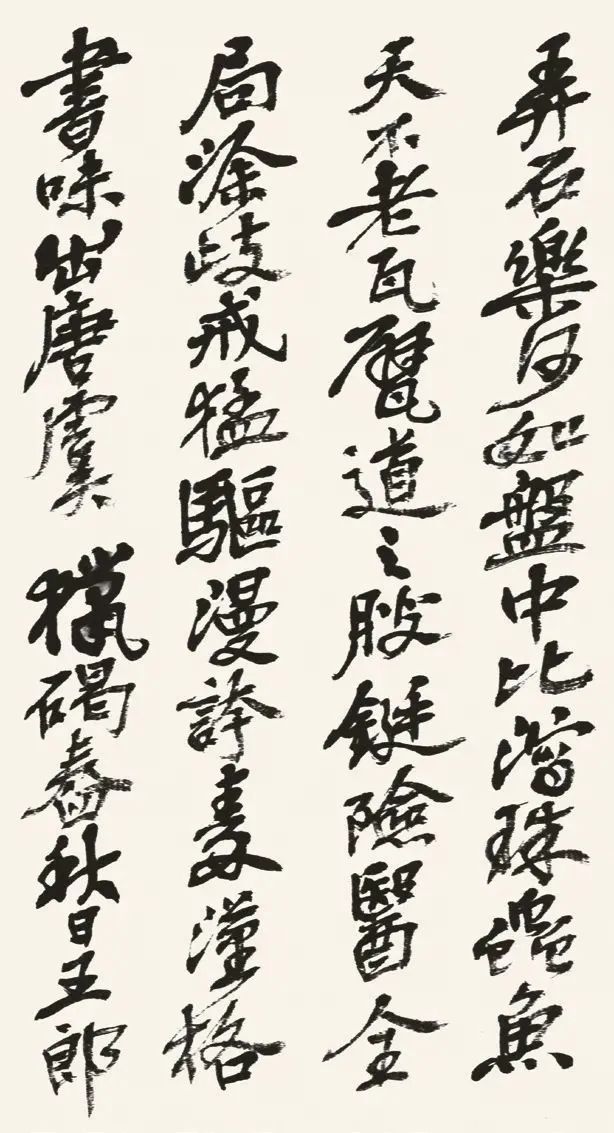 弄石樂何如盤中比瀉珠魚
天不老瓦甓道之腴鋌險醫全
局滌歧戒猛驅漫誇秦漢格
書味出唐虞獵碣春秋日王郎